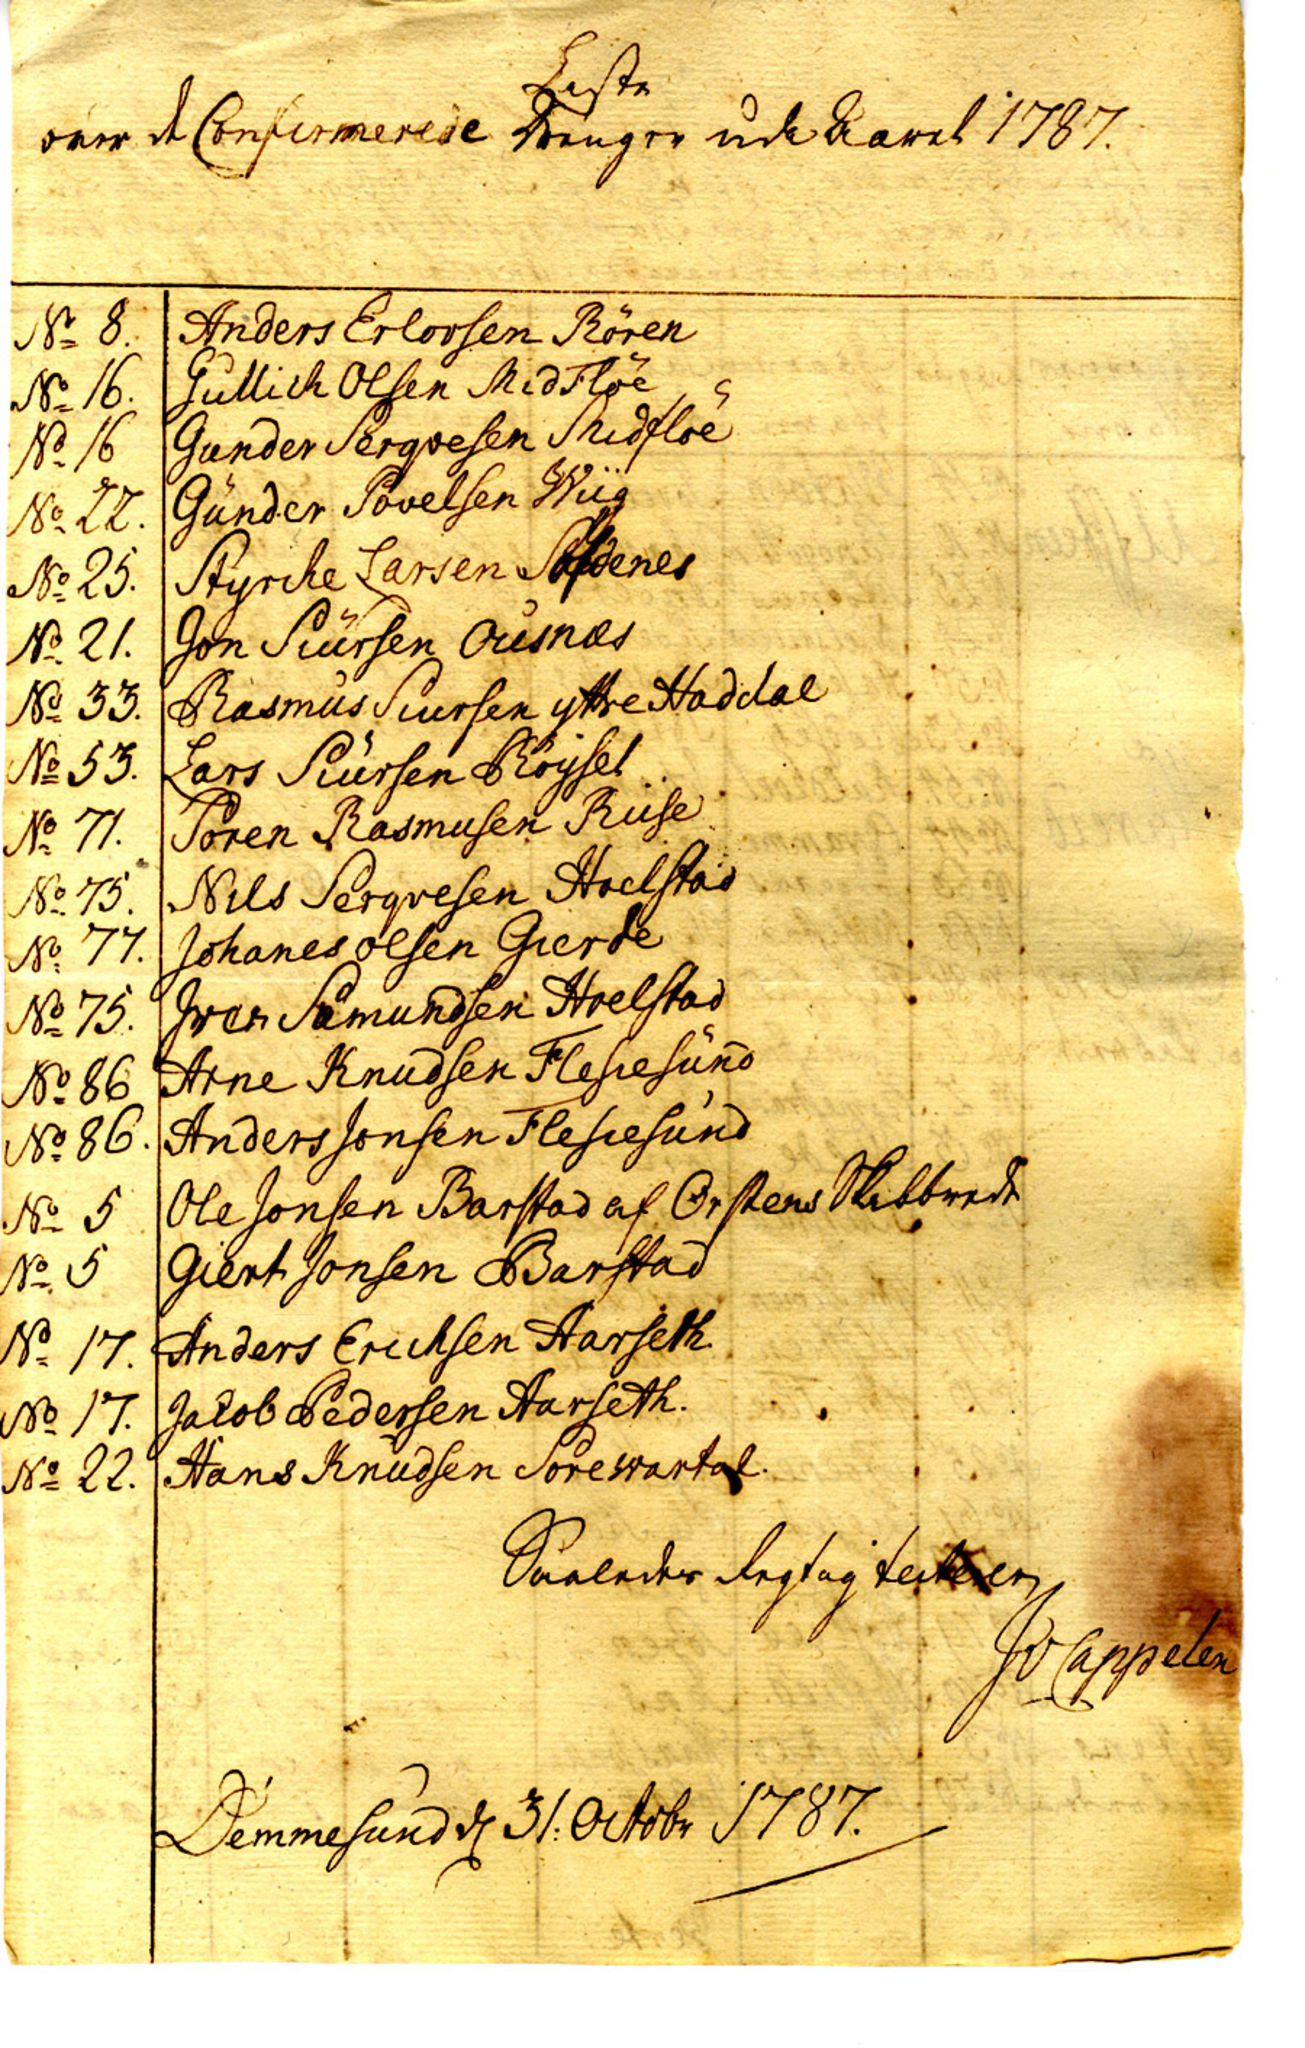 Liste
over de Confirmerede Drenge udi Aaret 1787.
No 8. Anders Erlovsen Rören
No 16. Gullich Olsen Midflöe
No 16 Gunder Serqvesen Midflöe
No 22. Günder Povelsen Wiig
No 25. Styrche Larsen
No 21. Jon Siursen Ousnæs
No 33. Rasmus Siursen yttre Haddal
No 53. Lars Siursen Röysel
No 71. Sören Rasmusen Riise
No 75. Nils Serqvesen Hoelstad
No 77. Johanes olsen Gierde
No 75. Iver Samundsen Hoelstad
No 86 Arne Knudsen Flesiesund
No 86. Anders Jonsen Flesiesund
No 5 Ole Jonsen Barstad af Örstens Skibbrede
No 5 Giert Jonsen Barstad
No 17. Anders Erichsen Aarseth
No 17. Jacob Pedersen Aarseth.
No 22. Hans Knudsen Sörewartal.
Saaledes Rigtig
JvCappelen
Demmesund d 31. Octobr 1787.